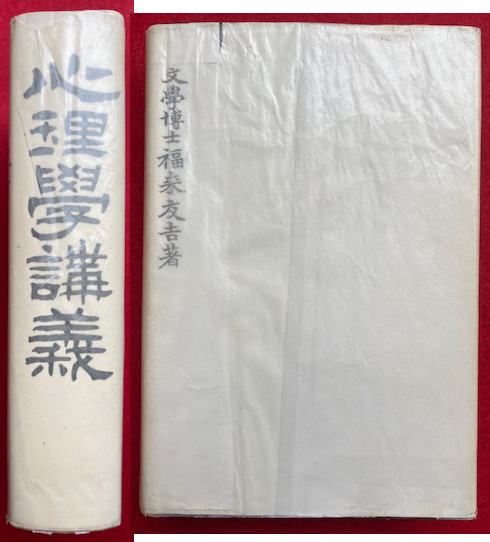 心理學講義
文學博士福来友吉著